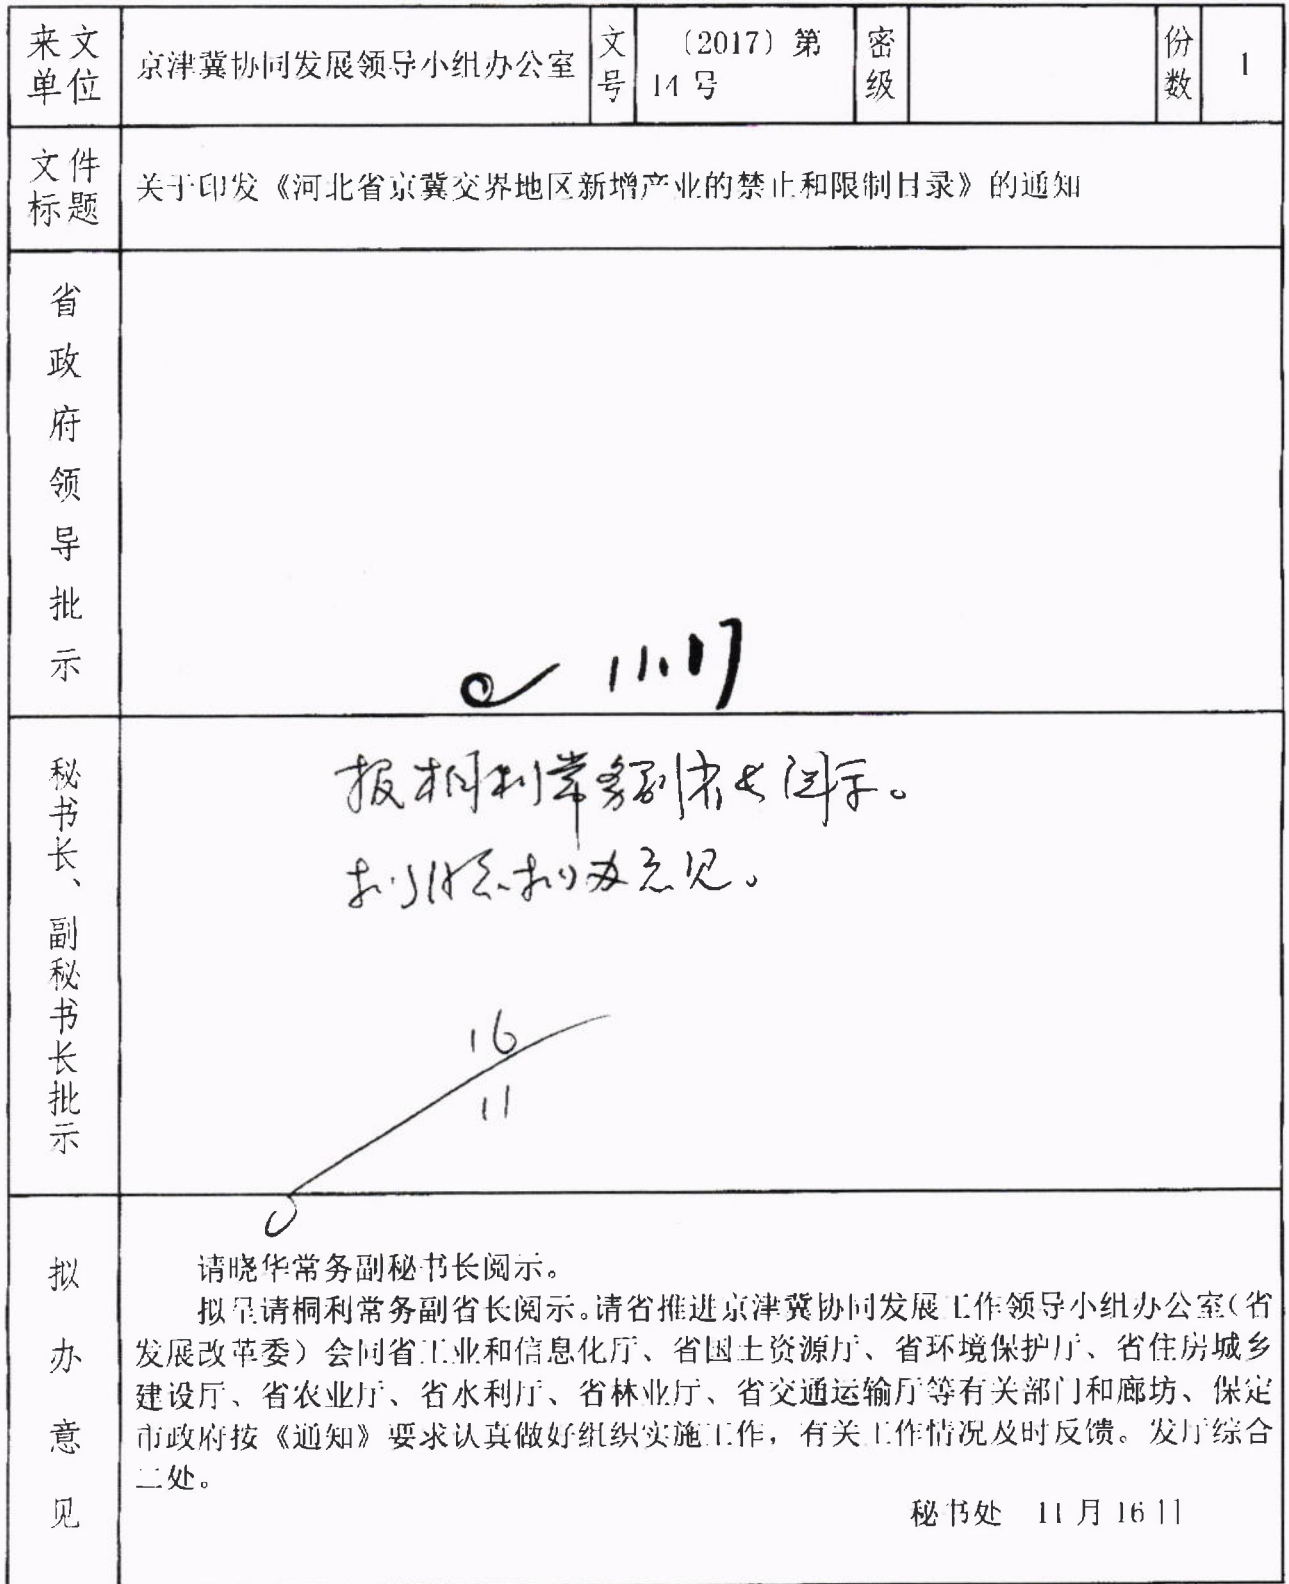 来文单位 京津冀协同发展领导小组办公室 文号 (2017) 第14号 密级 份数 1
文件标题 关于印发《河北省京冀交界地区新增产业的禁止和限制目录》的通知
省政府领导批示
11.17
秘书长、副秘书长批示
报桐利常务副省长阅示。
拟办意见。
16
11
拟办意见
请晓华常务副秘书长阅示。
拟呈请桐利常务副省长阅示。请省推进京津冀协同发展工作领导小组办公室(省
发展改革委)会同省工业和信息化厅、省国土资源厅、省环境保护厅、省住房城乡
建设厅、省农业厅、省水利厅、省林业厅、省交通运输厅等有关部门和廊坊、保定
市政府按《通知》要求认真做好组织实施工作，有关工作情况及时反馈。发厅综合
二处。
秘书处 11月16日